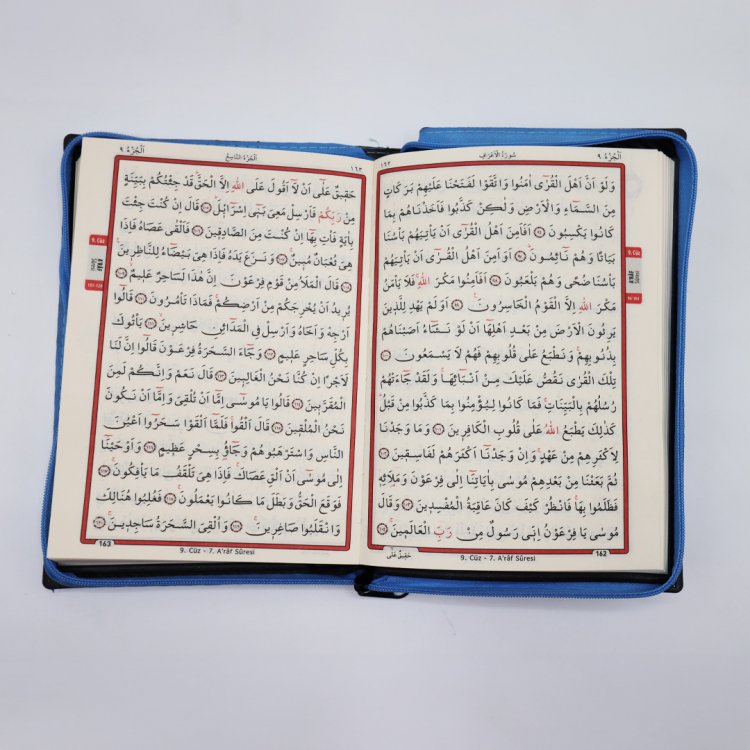 اَلْجُزْءُ ٩
سُورَةُ الْاَعْرَافِ
١٦٢
وَلَوْ اَنَّ اَهْلَ الْقُرٰٓى اٰمَنُوا وَاتَّقَوْا لَفَتَحْنَا عَلَيْهِمْ بَرَكَاتٍ
مِنَ السَّمَٓاءِ وَالْاَرْضِ وَلٰكِنْ كَذَّبُوا فَاَخَذْنَاهُمْ بِمَا
كَانُوا يَكْسِبُونَ ﴿٩٦﴾ اَفَاَمِنَ اَهْلُ الْقُرٰٓى اَنْ يَأْتِيَهُمْ بَأْسُنَا
بَيَاتًا وَهُمْ نَٓائِمُونَۜ ﴿٩٧﴾ اَوَاَمِنَ اَهْلُ الْقُرٰٓى اَنْ يَأْتِيَهُمْ
بَأْسُنَا ضُحًى وَهُمْ يَلْعَبُونَ ﴿٩٨﴾ اَفَاَمِنُوا مَكْرَ اللّٰهِۚ فَلَا يَأْمَنُ
مَكْرَ اللّٰهِ اِلَّا الْقَوْمُ الْخَاسِرُونَ۟ ﴿٩٩﴾ اَوَلَمْ يَهْدِ لِلَّذٖينَ
يَرِثُونَ الْاَرْضَ مِنْ بَعْدِ اَهْلِهَٓا اَنْ لَوْ نَشَٓاءُ اَصَبْنَاهُمْ
بِذُنُوبِهِمْۚ وَنَطْبَعُ عَلٰى قُلُوبِهِمْ فَهُمْ لَا يَسْمَعُونَ ﴿١٠٠﴾
تِلْكَ الْقُرٰى نَقُصُّ عَلَيْكَ مِنْ اَنْبَٓائِهَاۚ وَلَقَدْ جَٓاءَتْهُمْ
رُسُلُهُمْ بِالْبَيِّنَاتِۚ فَمَا كَانُوا لِيُؤْمِنُوا بِمَا كَذَّبُوا مِنْ قَبْلُۜ
كَذٰلِكَ يَطْبَعُ اللّٰهُ عَلٰى قُلُوبِ الْكَافِرٖينَ ﴿١٠١﴾ وَمَا وَجَدْنَا
لِاَكْثَرِهِمْ مِنْ عَهْدٍۚ وَاِنْ وَجَدْنَٓا اَكْثَرَهُمْ لَفَاسِقٖينَ ﴿١٠٢﴾
ثُمَّ بَعَثْنَا مِنْ بَعْدِهِمْ مُوسٰى بِاٰيَاتِنَٓا اِلٰى فِرْعَوْنَ وَمَلَا۬ئِهٖ
فَظَلَمُوا بِهَاۚ فَانْظُرْ كَيْفَ كَانَ عَاقِبَةُ الْمُفْسِدٖينَ ﴿١٠٣﴾ وَقَالَ
مُوسٰى يَا فِرْعَوْنُ اِنّٖي رَسُولٌ مِنْ رَبِّ الْعَالَمٖينَۙ ﴿١٠٤﴾
حَقٖيقٌ عَلٰٓى
162
9. Cüz - 7. A'râf Sûresi
9. Cüz
A'RÂF
Sûresi
96-104
اَلْجُزْءُ ٩
اَلْجُزْءُ التَّاسِعُ
١٦٣
حَقٖيقٌ عَلٰٓى اَنْ لَٓا اَقُولَ عَلَى اللّٰهِ اِلَّا الْحَقَّۜ قَدْ جِئْتُكُمْ بِبَيِّنَةٍ
مِنْ رَبِّكُمْ فَاَرْسِلْ مَعِيَ بَنٖٓي اِسْرَٓائٖلَۜ ﴿١٠٥﴾ قَالَ اِنْ كُنْتَ جِئْتَ
بِاٰيَةٍ فَأْتِ بِهَٓا اِنْ كُنْتَ مِنَ الصَّادِقٖينَ ﴿١٠٦﴾ فَاَلْقٰى عَصَاهُ فَاِذَا
هِيَ ثُعْبَانٌ مُبٖينٌۚ ﴿١٠٧﴾ وَنَزَعَ يَدَهُ فَاِذَا هِيَ بَيْضَٓاءُ لِلنَّاظِرٖينَ۟
﴿١٠٨﴾ قَالَ الْمَلَاُ مِنْ قَوْمِ فِرْعَوْنَ اِنَّ هٰذَا لَسَاحِرٌ عَلٖيمٌۙ ﴿١٠٩﴾
يُرٖيدُ اَنْ يُخْرِجَكُمْ مِنْ اَرْضِكُمْۚ فَمَاذَا تَأْمُرُونَ ﴿١١٠﴾ قَالُٓوا
اَرْجِهْ وَاَخَاهُ وَاَرْسِلْ فِي الْمَدَٓائِنِ حَاشِرٖينَۙ ﴿١١١﴾ يَأْتُوكَ
بِكُلِّ سَاحِرٍ عَلٖيمٍ ﴿١١٢﴾ وَجَٓاءَ السَّحَرَةُ فِرْعَوْنَ قَالُٓوا اِنَّ لَنَا
لَاَجْرًا اِنْ كُنَّا نَحْنُ الْغَالِبٖينَ ﴿١١٣﴾ قَالَ نَعَمْ وَاِنَّكُمْ لَمِنَ
الْمُقَرَّبٖينَ ﴿١١٤﴾ قَالُوا يَا مُوسٰٓى اِمَّٓا اَنْ تُلْقِيَ وَاِمَّٓا اَنْ نَكُونَ
نَحْنُ الْمُلْقٖينَ ﴿١١٥﴾ قَالَ اَلْقُواۚ فَلَمَّٓا اَلْقَوْا سَحَرُٓوا اَعْيُنَ
النَّاسِ وَاسْتَرْهَبُوهُمْ وَجَٓاؤُ بِسِحْرٍ عَظٖيمٍ ﴿١١٦﴾ وَاَوْحَيْنَٓا
اِلٰى مُوسٰٓى اَنْ اَلْقِ عَصَاكَۚ فَاِذَا هِيَ تَلْقَفُ مَا يَأْفِكُونَۚ ﴿١١٧﴾
فَوَقَعَ الْحَقُّ وَبَطَلَ مَا كَانُوا يَعْمَلُونَۚ ﴿١١٨﴾ فَغُلِبُوا هُنَالِكَ
وَانْقَلَبُوا صَاغِرٖينَۚ ﴿١١٩﴾ وَاُلْقِيَ السَّحَرَةُ سَاجِدٖينَۚ ﴿١٢٠﴾
163
9. Cüz - 7. A'râf Sûresi
9. Cüz
A'RÂF
Sûresi
105-120